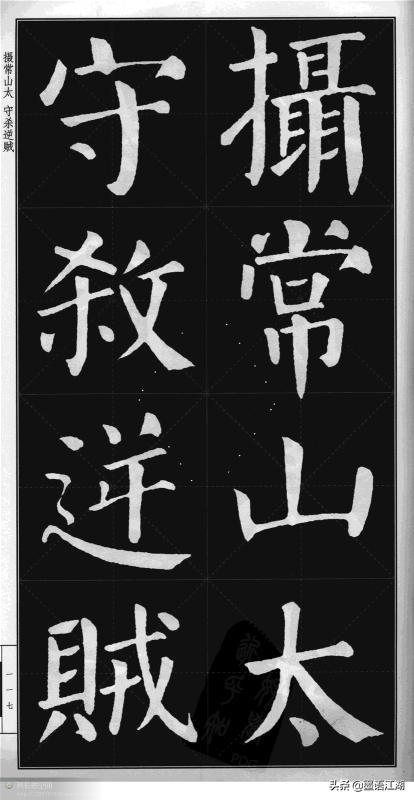 攝常山太
守殺逆賊
摄常山太 守杀逆贼
一一七
头条@墨语江湖